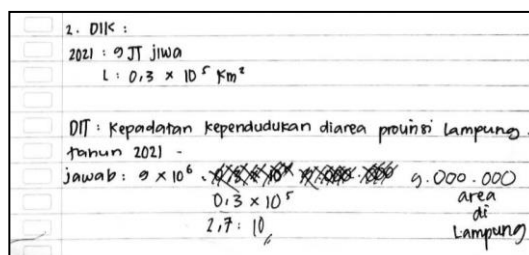 2. DIK :
2021 : 9 JT jiwa
L : 0,3 × 10⁵ Km²
DIT : Kepadatan kependudukan diarea provinsi Lampung.
tahun 2021 -
jawab : 9 × 10⁶ . 9.000.000
0,3 × 10⁵ area
di
2,7 : 10 Lampung